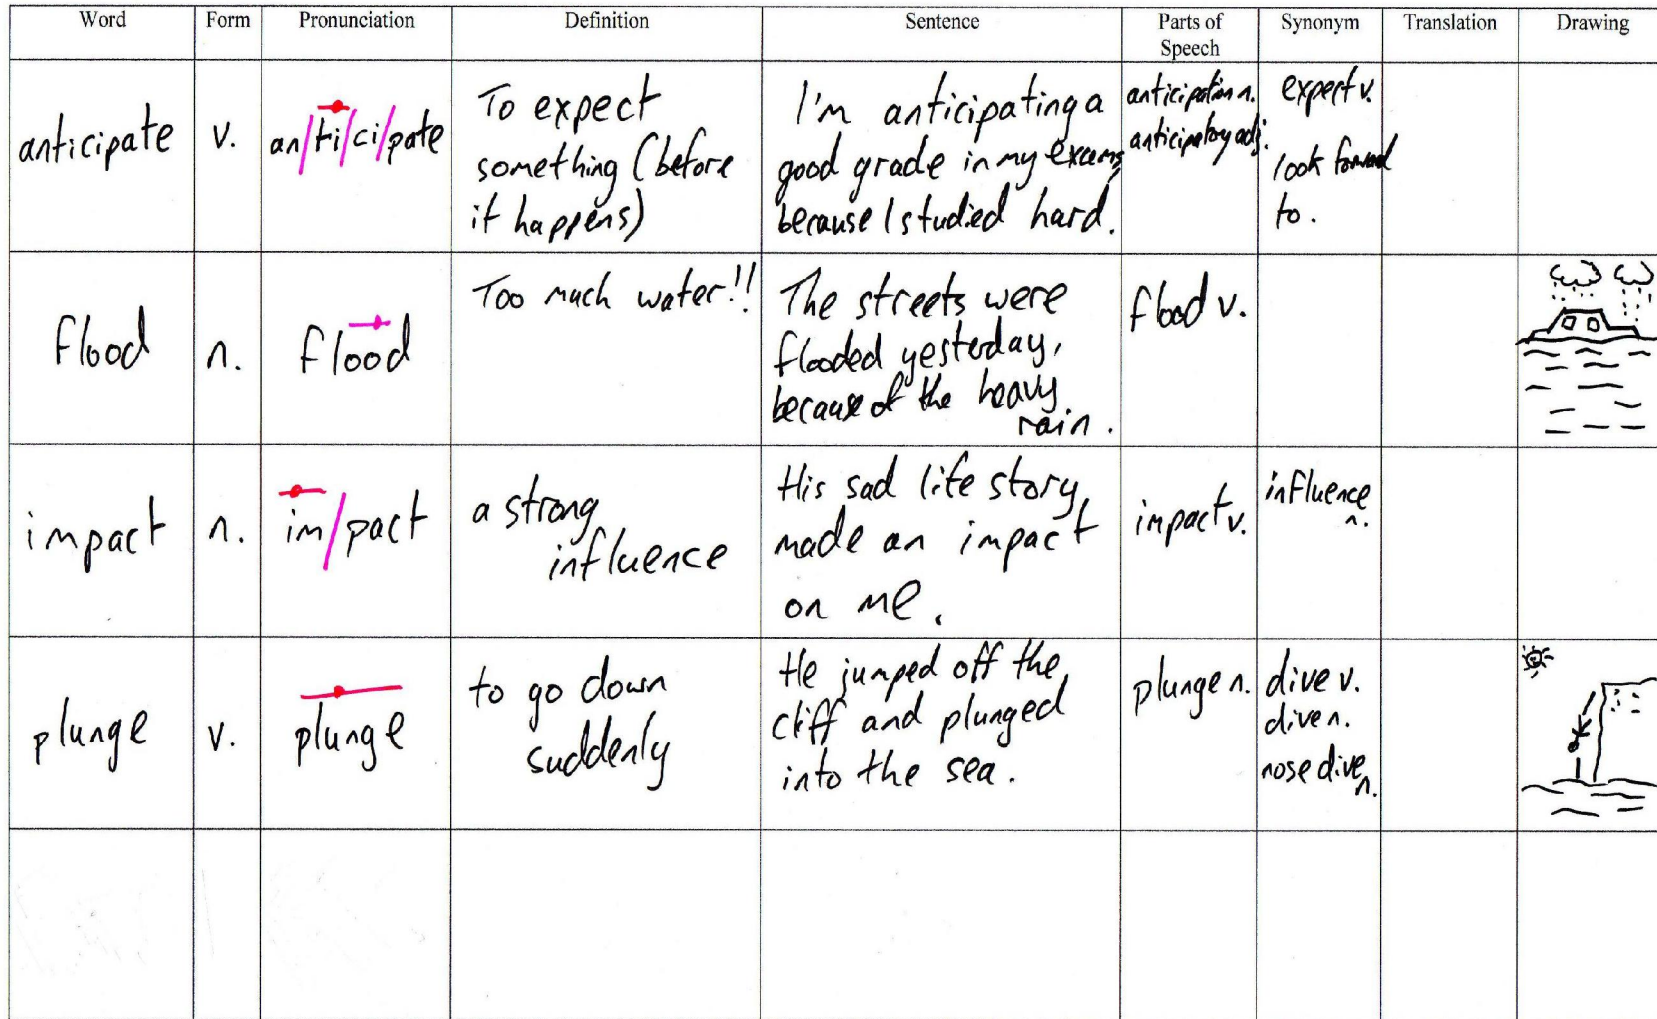 Word Form Pronunciation Definition Sentence Parts of Speech Synonym Translation Drawing
anticipate
v.
an/ti/ci/pate
To expect
something (before
it happens)
I'm anticipating a
good grade in my exams,
because I studied hard.
anticipation n.
anticipatory adj.
expect v.
look forward
to.
flood
n.
flood
Too much water!!
The streets were
flooded yesterday,
because of the heavy
rain.
flood v.
impact
n.
im/pact
a strong
influence
His sad life story,
made an impact
on me.
impact v.
influence
n.
plunge
v.
plunge
to go down
suddenly
He jumped off the
cliff and plunged
into the sea.
plunge n.
dive v.
dive n.
nose dive
n.